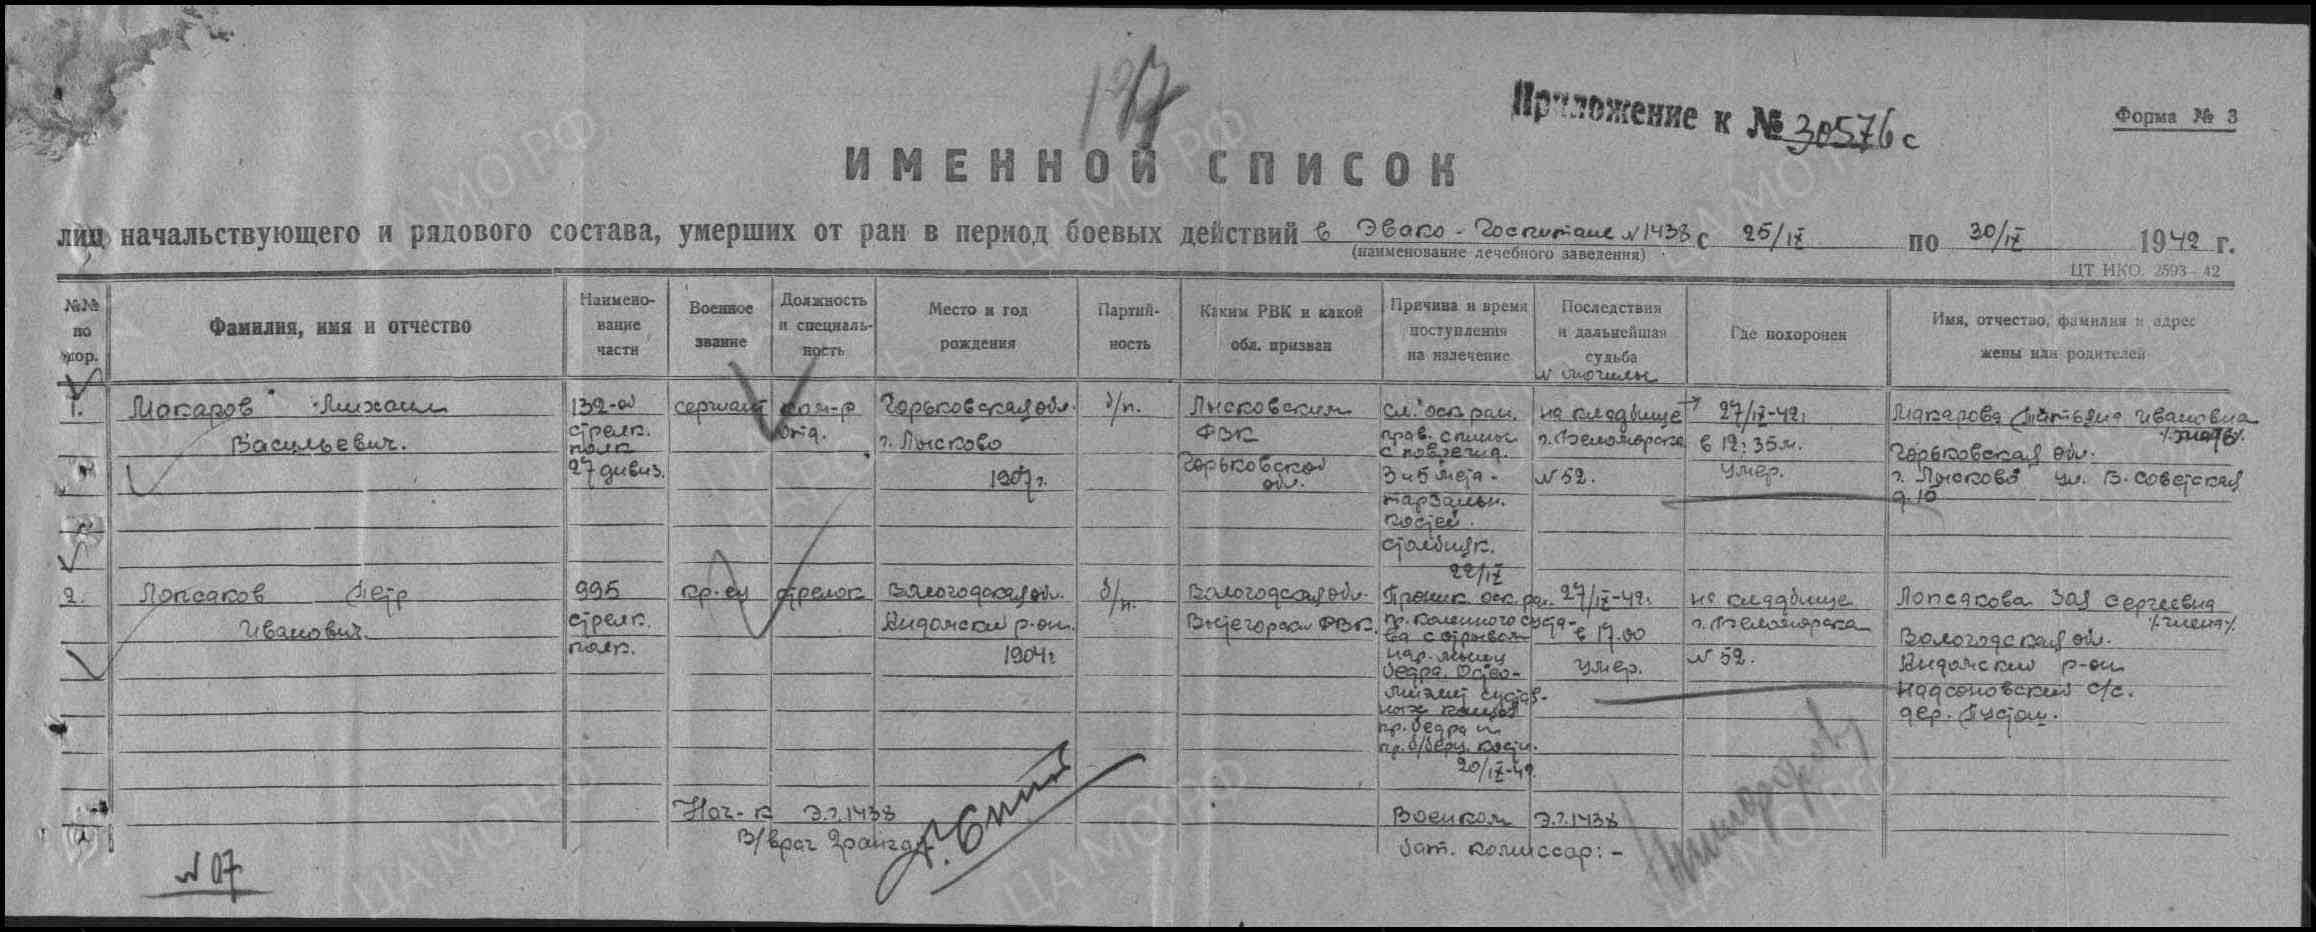 Приложение к № 30576с
Форма № 3
ИМЕННОЙ СПИСОК
лиц начальствующего и рядового состава, умерших от ран в период боевых действий в Эвако-Госпитале N 1438 с 25/IX по 30/IX 1942 г.
(наименование лечебного заведения)
ЦТ НКО. 2593-42
№№ по пор.
Фамилия, имя и отчество
Наименование части
Военное звание
Должность и специальность
Место и год рождения
Партийность
Каким РВК и какой обл. призван
Причина и время поступления на излечение
Последствия и дальнейшая судьба
N могилы
Где похоронен
Имя, отчество, фамилия и адрес жены или родителей
1.
Макаров Михаил
Васильевич.
132-й
стрелк.
полк
27 дивиз.
сержант
ком-р
отд.
Горьковская обл.
г. Лысково
1907 г.
б/п.
Лысковским
РВК
Горьковской
обл.
сл. оск ран.
прав. стопы
с поврежд.
3 и 5 мета-
тарзальн.
костей.
Столбняк.
22/IX
на кладбище
г. Беломорска
N 52.
27/IX-42г
в 12:35м.
умер.
Макарова Татьяна Ивановна
/мать/.
Горьковская обл.
г. Лысково ул. В. Советская
д. 10
2.
Лопсаков Петр
Иванович.
995
стрелк.
полк.
кр-ец
стрелок
Вологодская обл.
Андомский р-он.
1904г
б/п.
Вологодская обл.
Вытегорский РВК.
Проник. оск. ран.
пр. коленного суста-
ва с отрывом
нар. мышц
бедра. Остео-
миэлит сустав-
ных концов
пр. бедра и
пр. б/берц. кости.
20/IX-42.
27/IX-42г
в 17.00
умер.
на кладбище
г. Беломорска
N 52.
Лопсакова Зоя Сергеевна
/жена/.
Вологодская обл.
Андомский р-он
с/с.
дер.
Нач-к Э.Г. 1438
В/врач 2 ранга
Военком Э.Г. 1438
бат. комиссар: -
N 07
ЦА МО РФ